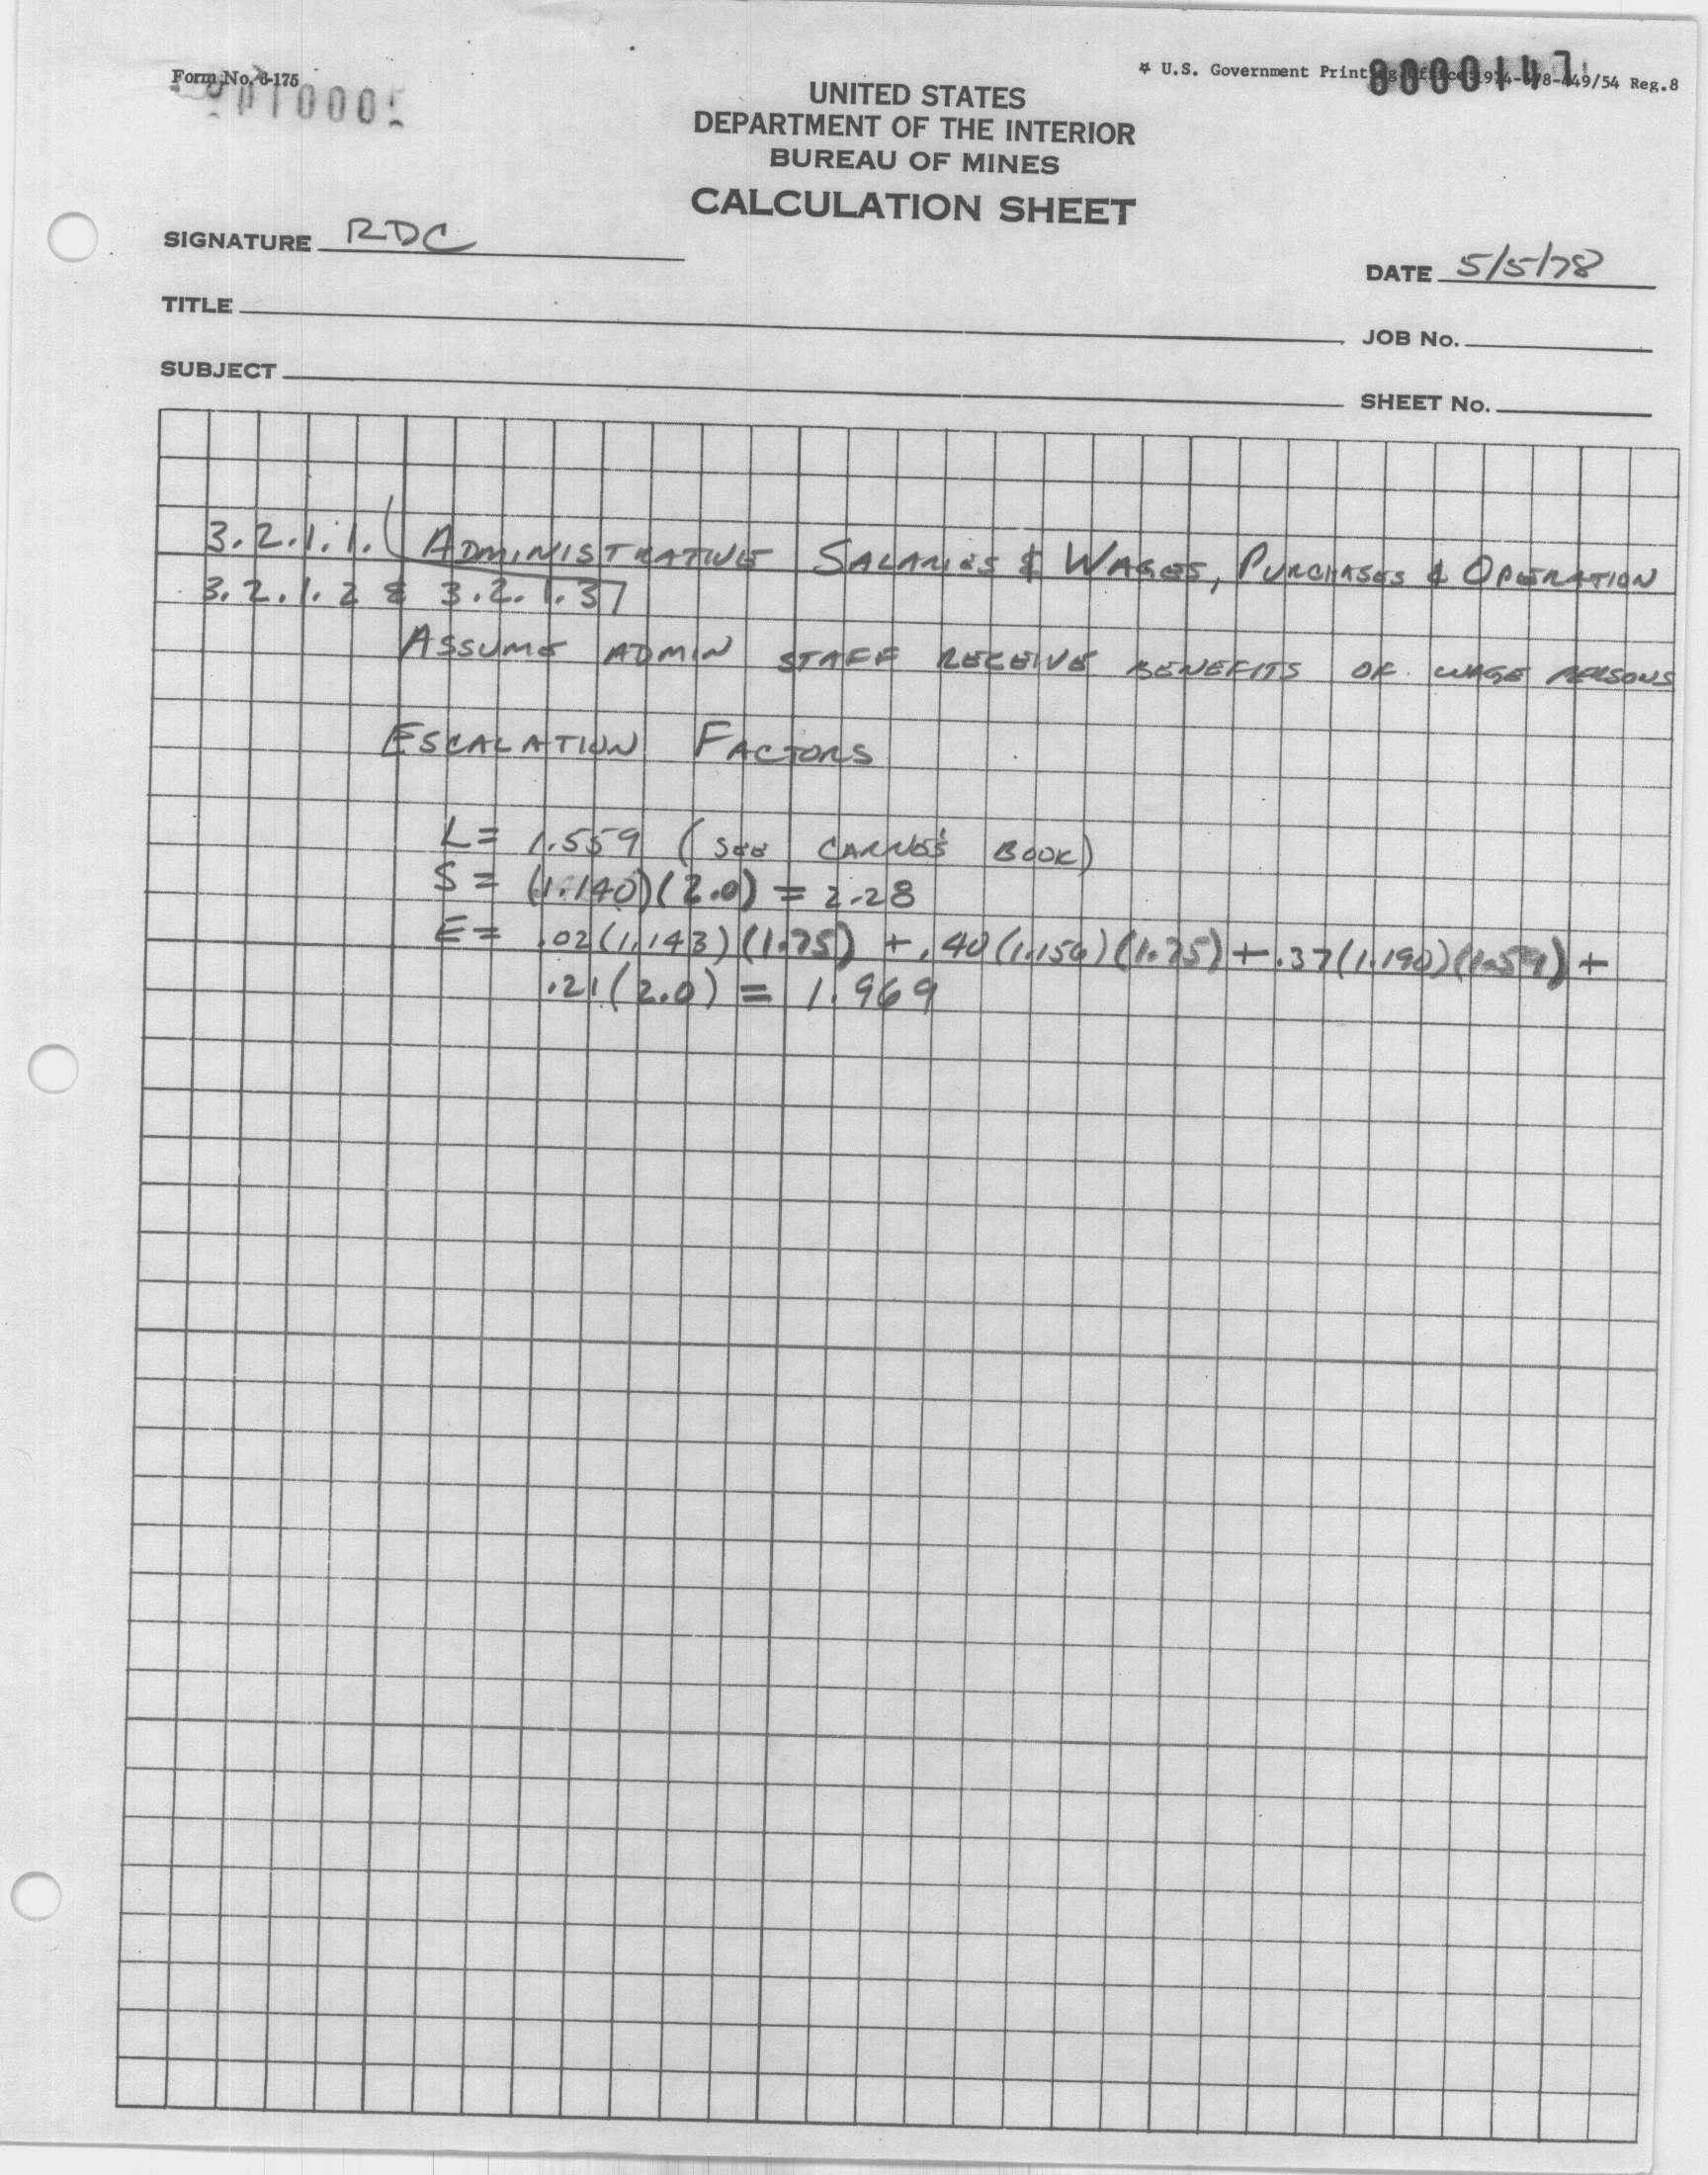 Form No. 6-175
* U.S. Government Printing Office 1974-678-449/54 Reg.8
UNITED STATES
DEPARTMENT OF THE INTERIOR
BUREAU OF MINES
CALCULATION SHEET
SIGNATURE RDC
DATE 5/5/78
TITLE
JOB No.
SUBJECT
SHEET No.
3.2.1.1. ADMINISTRATIVE SALARIES & WAGES, PURCHASES & OPERATION
3.2.1.2 & 3.2.1.3
ASSUME ADMIN STAFF RECEIVE BENEFITS OF WAGE PERSONS
ESCALATION FACTORS
L = 1.559 (SEE BOOK)
S = (1.140)(2.0) = 2.28
E = .02(1.143)(1.75) + .40(1.156)(1.75) + .37(1.190)(1.59) +
.21(2.0) = 1.969